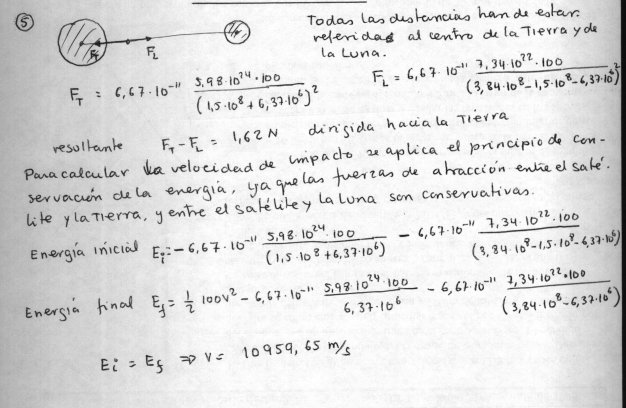 ⑤ Todas las distancias han de estar
referidas al centro de la Tierra y de
la Luna.
F_T F_L
F_T = 6,67·10⁻¹¹ 5,98·10²⁴·100 / (1,5·10⁸ + 6,37·10⁶)² F_L = 6,67·10⁻¹¹ 7,34·10²²·100 / (3,84·10⁸ - 1,5·10⁸ - 6,37·10⁶)²
resultante F_T - F_L = 1,62 N dirigida hacia la Tierra
Para calcular la velocidad de impacto se aplica el principio de con-
servación de la energía, ya que las fuerzas de atracción entre el saté-
lite y la Tierra, y entre el satélite y la Luna son conservativas.
Energía inicial E_i = -6,67·10⁻¹¹ 5,98·10²⁴·100 / (1,5·10⁸ + 6,37·10⁶) - 6,67·10⁻¹¹ 7,34·10²²·100 / (3,84·10⁸ - 1,5·10⁸ - 6,37·10⁶)
Energía final E_f = 1/2 100v² - 6,67·10⁻¹¹ 5,98·10²⁴·100 / 6,37·10⁶ - 6,67·10⁻¹¹ 7,34·10²²·100 / (3,84·10⁸ - 6,37·10⁶)
E_i = E_f ⇒ v = 10959,65 m/s